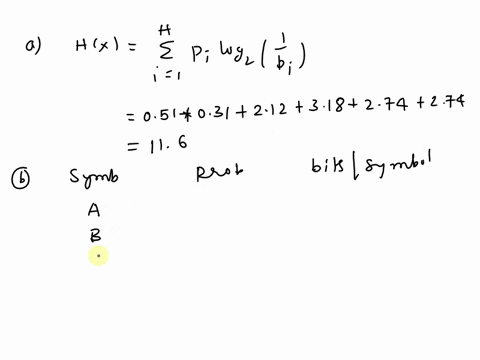 a) H(x) = H Σ i=1 Pi log2 (1/bi)
= 0.51 * 0.31 + 2.12 + 3.18 + 2.74 + 2.74
= 11.6
(b) Symb Prob bits | Symbol
A
B